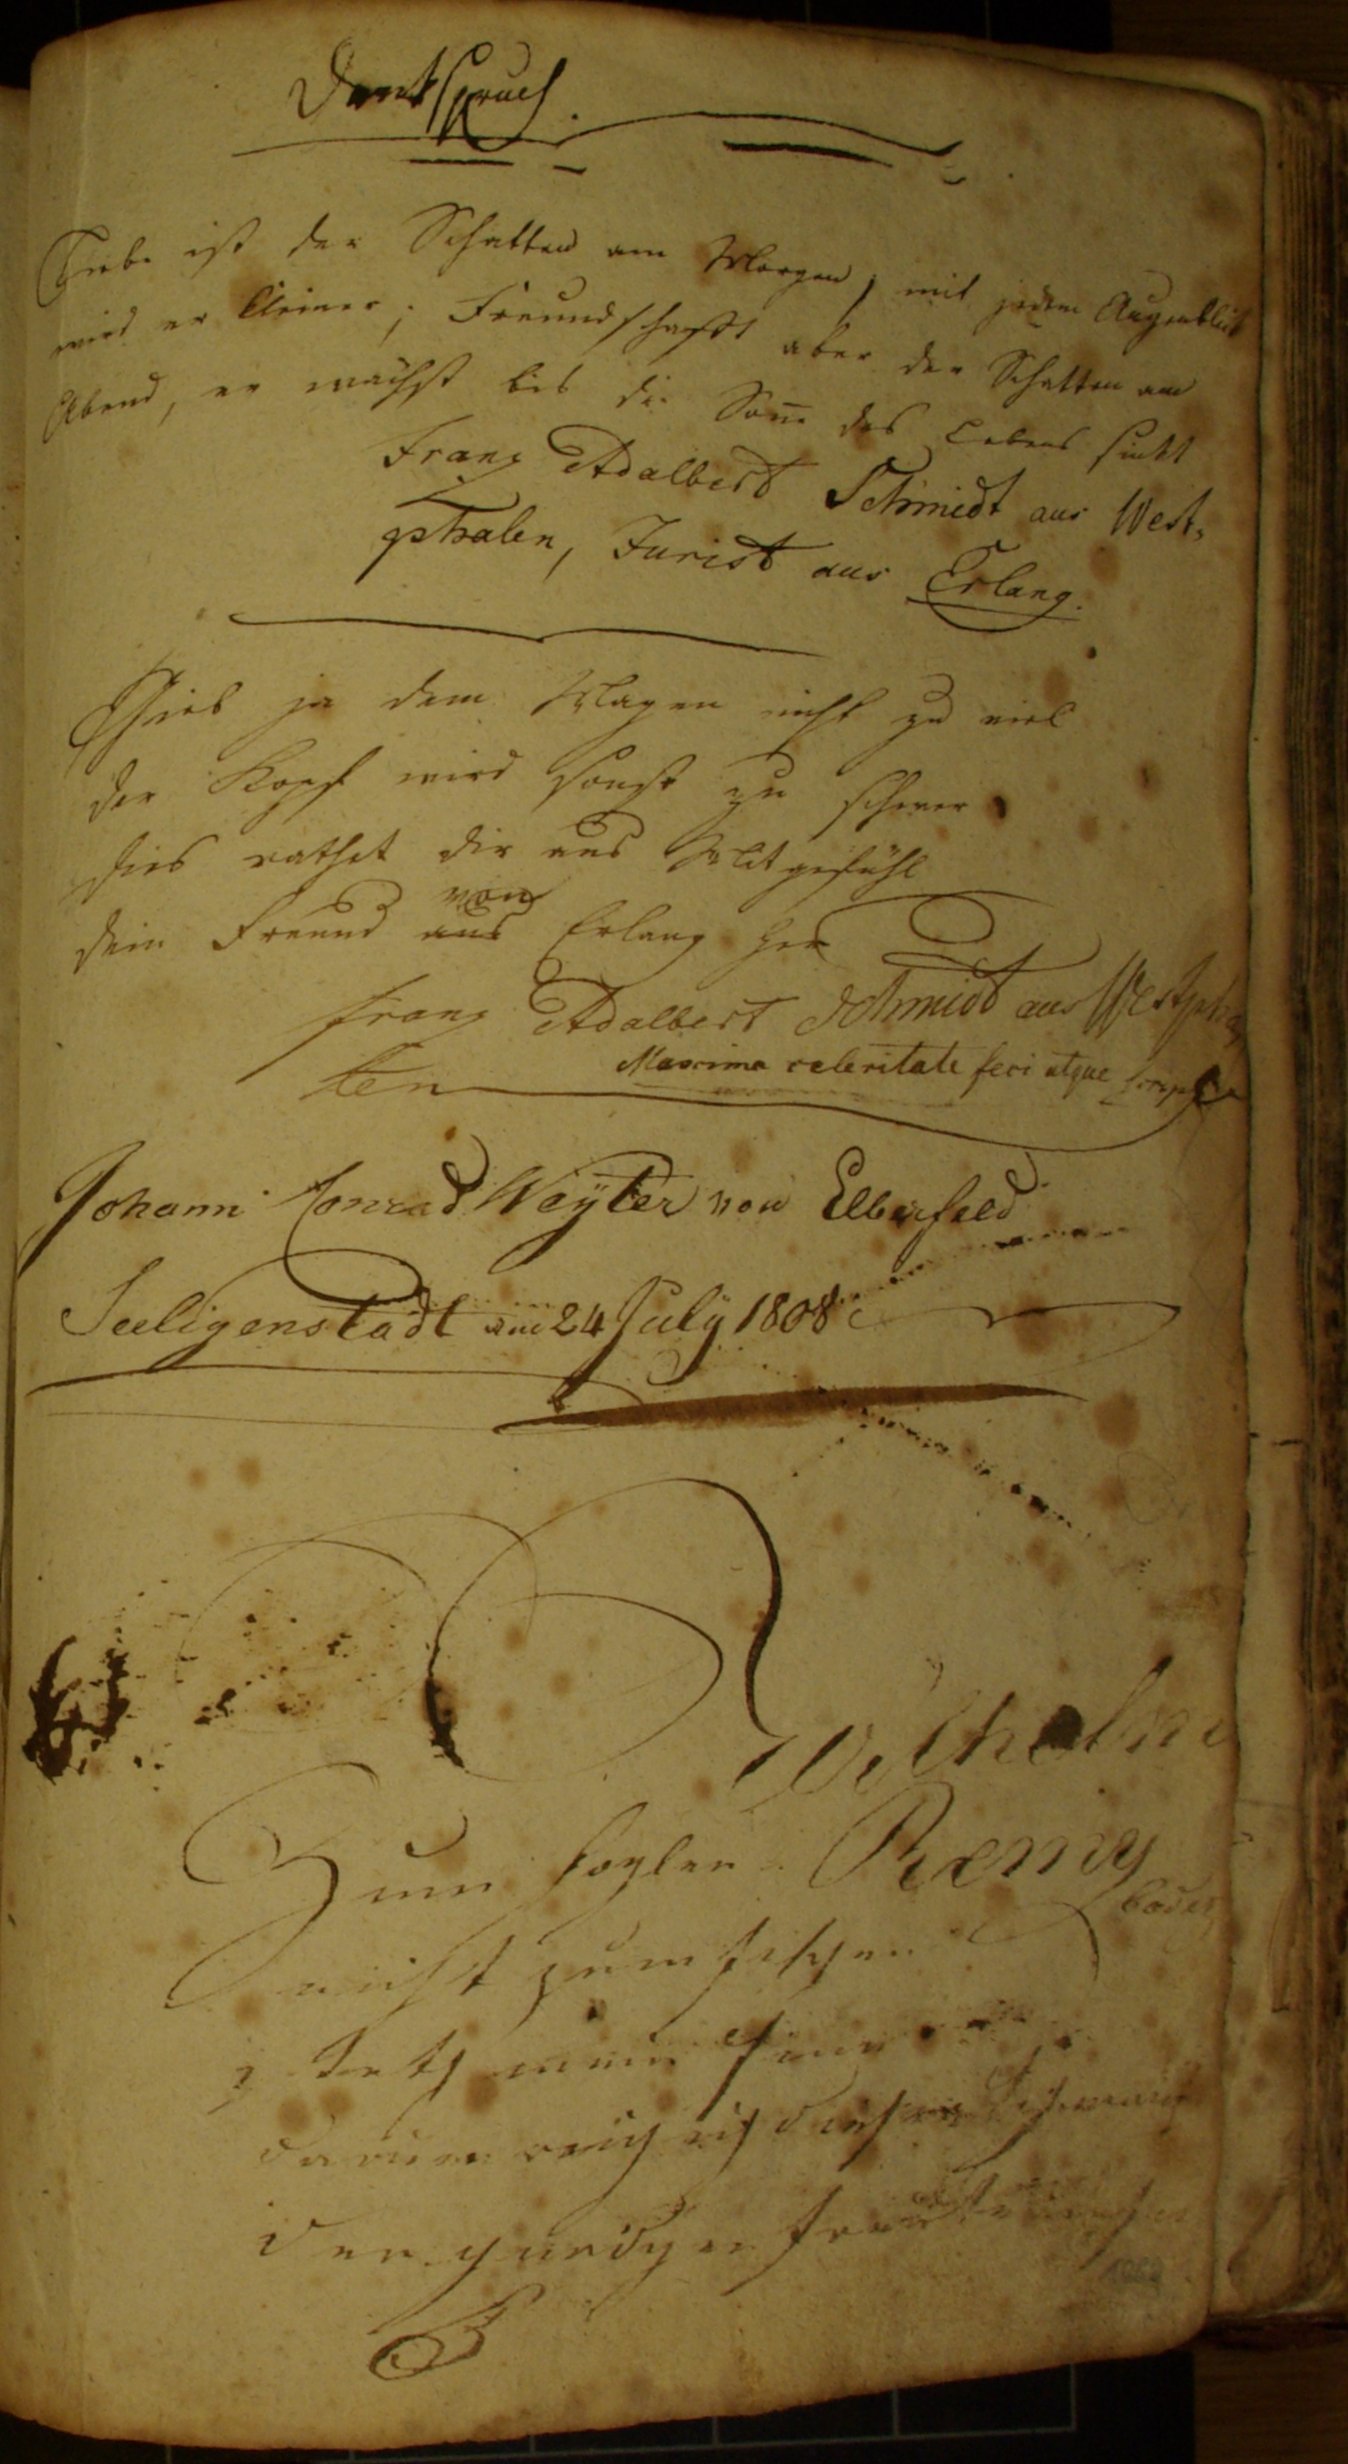 Denkspruch.
Liebe ist der Schatten am Morgen, mit jedem Augenblick
wird er kleiner; Freundschafft aber der Schatten am
Abend, er wächst bis die Soñe des Lebens sinkt
Franz Adalbert Schmidt aus West-
phalen, Jurist aus Erlang.
Gieb ja dem Magen nicht zu viel
der Kopf wird sonst zu schwer
dies rathet dir aus Mitgefühl
von
dein Freund aus Erlang her
Franz Adalbert Schmidt aus Westpha-
len
Maxima celeritate feci atque scripsi
Johann Conrad Weyler von Elberfeld
Seeligenstadt am 24 July 1808
Wilhelm
Zum Remy
nicht zum
mein
darum
den